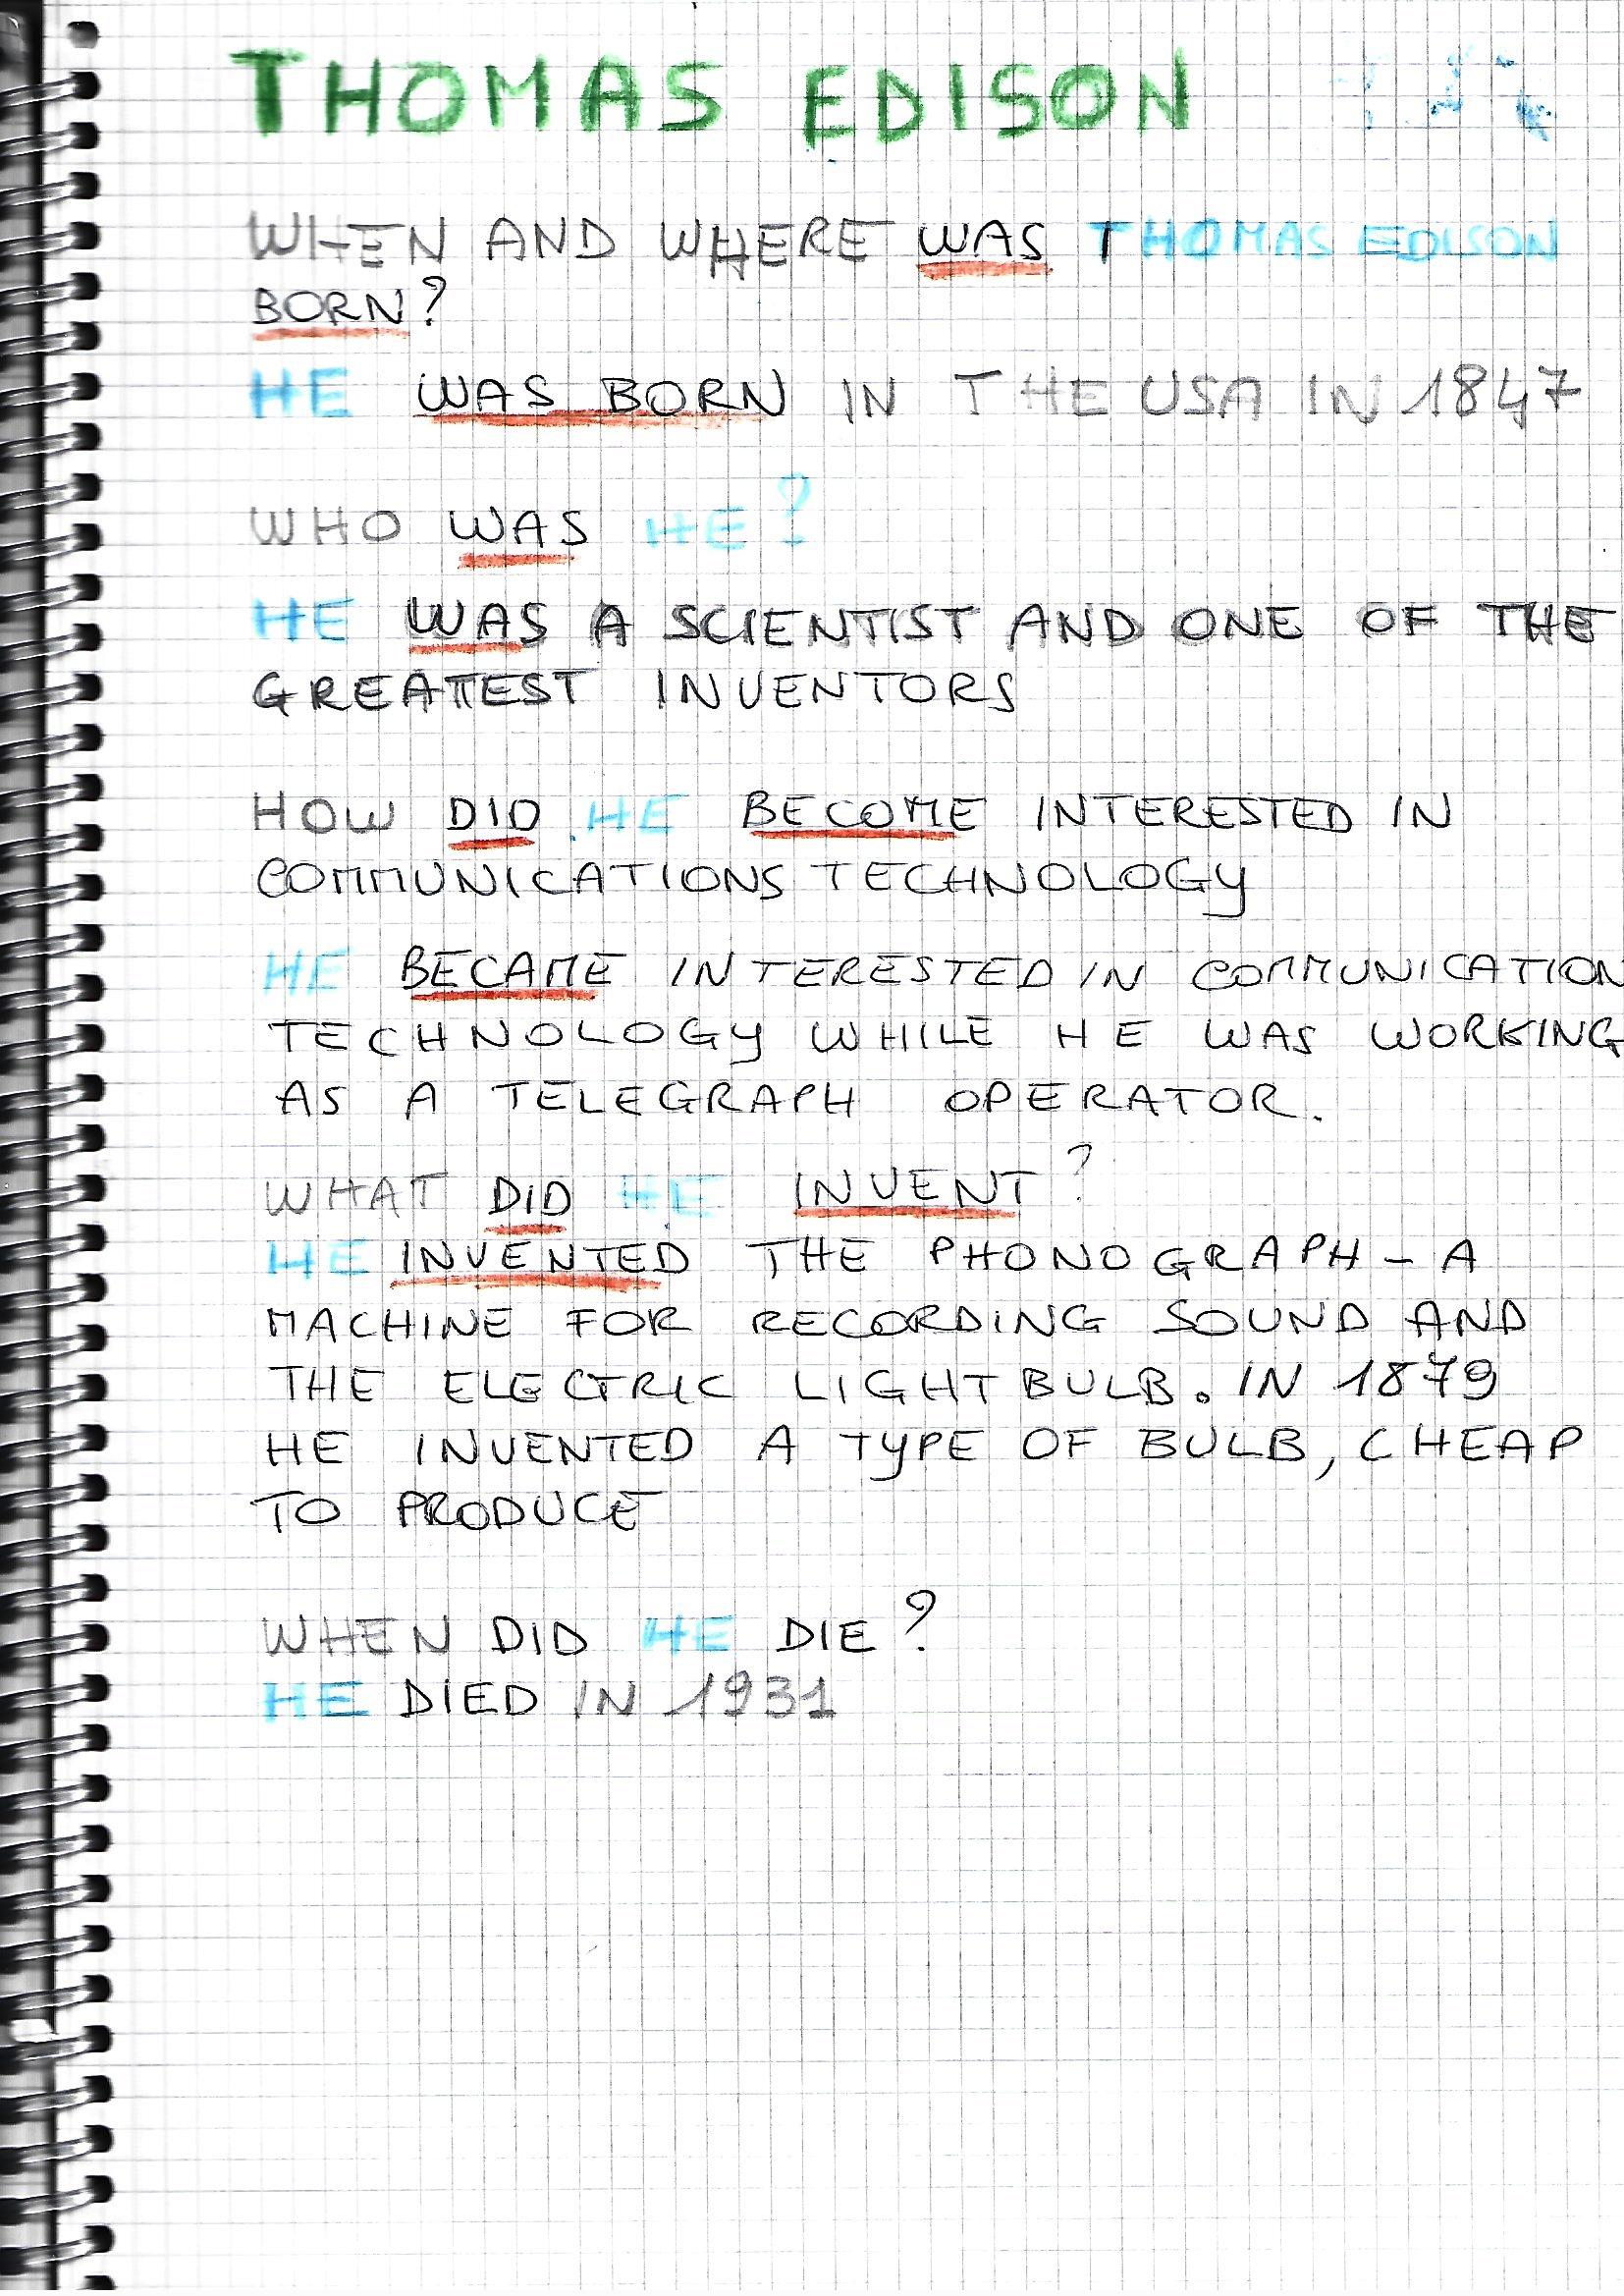 THOMAS EDISON
WHEN AND WHERE WAS THOMAS EDISON
BORN?
HE WAS BORN IN THE USA IN 1847
WHO WAS HE?
HE WAS A SCIENTIST AND ONE OF THE
GREATEST INVENTORS
HOW DID HE BECOME INTERESTED IN
COMMUNICATIONS TECHNOLOGY
HE BECAME INTERESTED IN COMMUNICATION
TECHNOLOGY WHILE HE WAS WORKING
AS A TELEGRAPH OPERATOR.
WHAT DID HE INVENT?
HE INVENTED THE PHONOGRAPH - A
MACHINE FOR RECORDING SOUND AND
THE ELECTRIC LIGHT BULB. IN 1879
HE INVENTED A TYPE OF BULB, CHEAP
TO PRODUCE
WHEN DID HE DIE?
HE DIED IN 1931